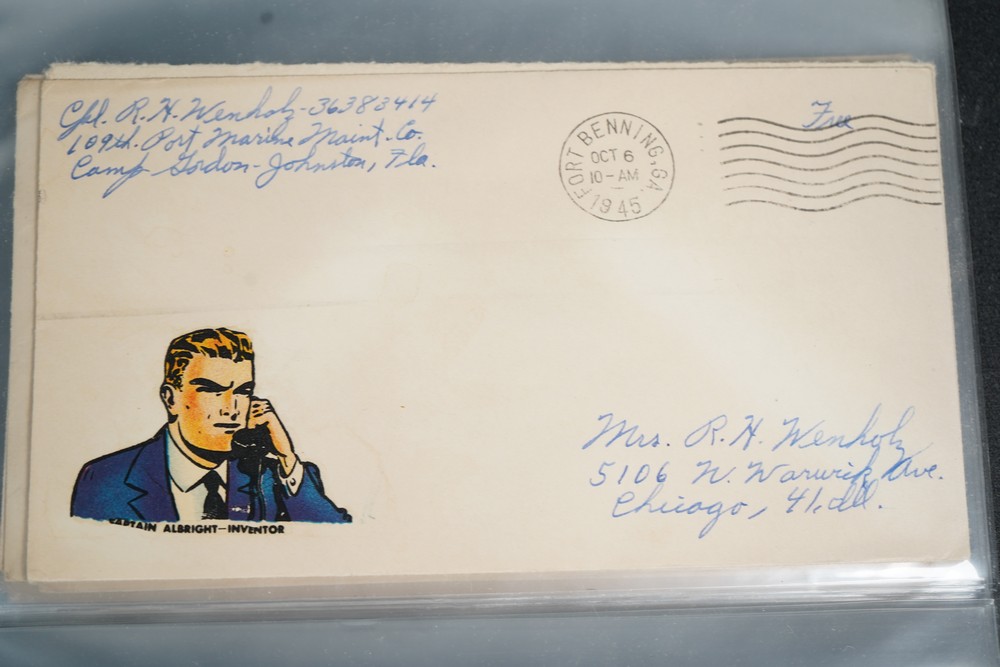 Cpl. R. H. Wenholz - 36383414
109th. Port Marine Maint. Co.
Camp Gordon - Johnston, Fla.
FORT BENNING, GA.
OCT 6
10 - AM
1945
Free
Mrs. R. H. Wenholz
5106 W. Warwick Ave.
Chicago, 41, Ill.
CAPTAIN ALBRIGHT—INVENTOR